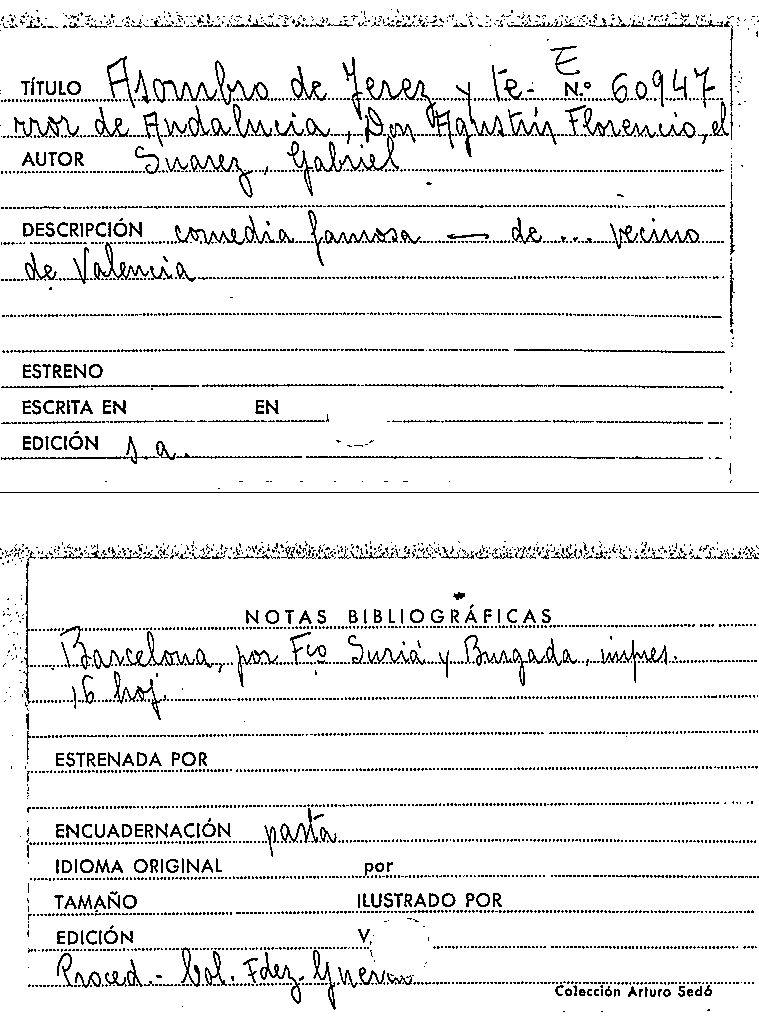 E
TÍTULO Asombro de Jerez y te- N.º 60947
rror de Andalucia, Don Agustín Florencio, el
AUTOR Suarez, Gabriel
DESCRIPCIÓN comedia famosa — de ... vecino
de Valencia
ESTRENO
ESCRITA EN EN
EDICIÓN s.a.
NOTAS BIBLIOGRÁFICAS
Barcelona, por Fco Suriá y Burgada, impres.
16 hoj.
ESTRENADA POR
ENCUADERNACIÓN pasta
IDIOMA ORIGINAL por
TAMAÑO ILUSTRADO POR
EDICIÓN V.
Proced.- Col. Fdez-Guerra
Colección Arturo Sedó